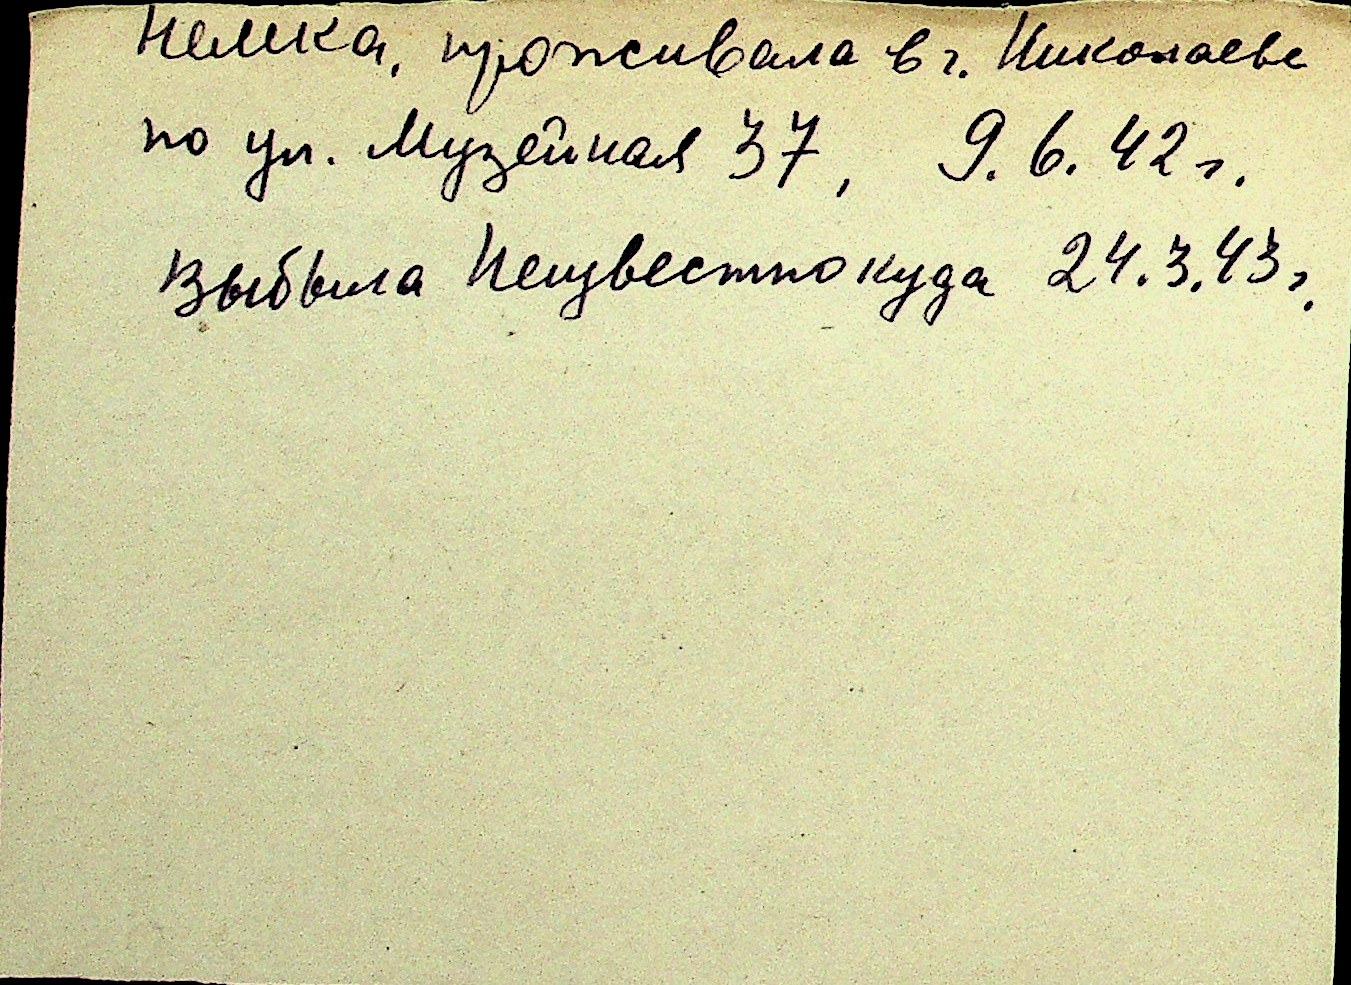 Немка, проживала в г. Николаеве
по ул. Музейная 37, 9.6.42 г.
Выбыла Неизвестно куда 24.3.43 г.